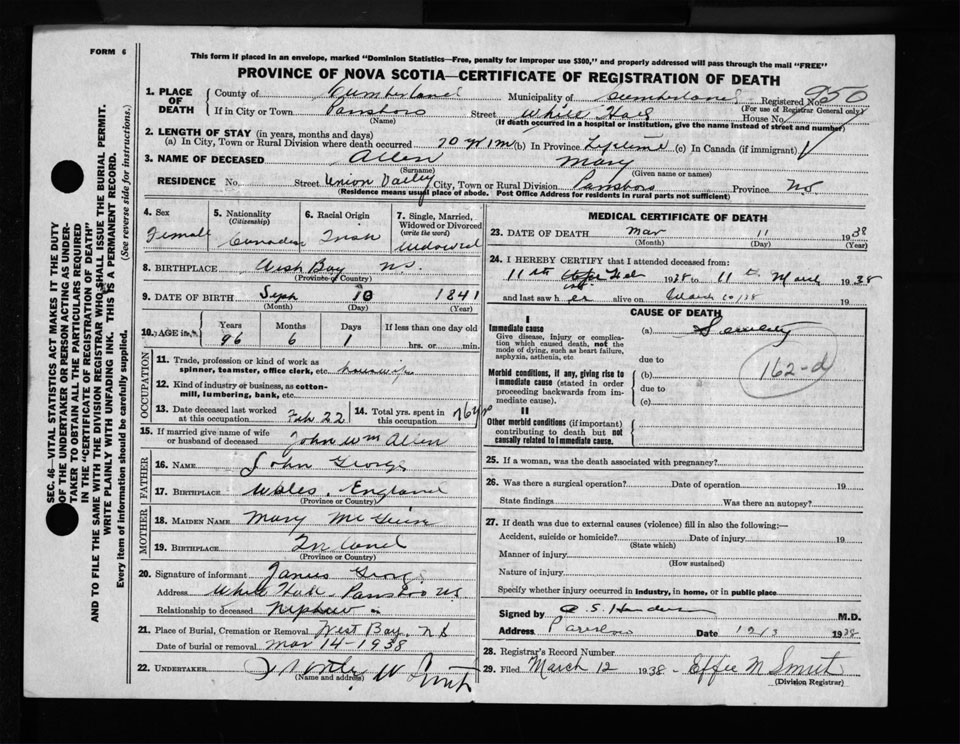 FORM 6
This form if placed in an envelope, marked "Dominion Statistics—Free, penalty for improper use $300," and properly addressed will pass through the mail "FREE"
PROVINCE OF NOVA SCOTIA—CERTIFICATE OF REGISTRATION OF DEATH
SEC. 46—VITAL STATISTICS ACT MAKES IT THE DUTY
OF THE UNDERTAKER OR PERSON ACTING AS UNDER-
TAKER TO OBTAIN ALL THE PARTICULARS REQUIRED
IN THE "CERTIFICATE OF REGISTRATION OF DEATH"
AND TO FILE THE SAME WITH THE DIVISION REGISTRAR WHO SHALL ISSUE THE BURIAL PERMIT.
WRITE PLAINLY WITH UNFADING INK. THIS IS A PERMANENT RECORD.
Every item of information should be carefully supplied. (See reverse side for instructions.)
1. PLACE OF DEATH
County of Cumberland Municipality of Cumberland Registered No. 950
(For use of Registrar General only)
If in City or Town Parrsboro Street White Hall House No.
(Name) (If death occurred in a hospital or institution, give the name instead of street and number)
2. LENGTH OF STAY (in years, months and days)
(a) In City, Town or Rural Division where death occurred 70 yr 1 m (b) In Province Lifetime (c) In Canada (if immigrant)
3. NAME OF DECEASED Allen Mary
(Surname) (Given name or names)
RESIDENCE No. Street Union Valley City, Town or Rural Division Parrsboro Province NS
(Residence means usual place of abode. Post Office Address for residents in rural parts not sufficient)
4. Sex Female
5. Nationality (Citizenship) Canadian
6. Racial Origin Irish
7. Single, Married, Widowed or Divorced (write the word) Widowed
8. BIRTHPLACE West Bay N.S.
(Province or Country)
9. DATE OF BIRTH Sept 10 1841
(Month) (Day) (Year)
10. AGE Years 96 Months 6 Days 1 If less than one day old hrs. or min.
OCCUPATION
11. Trade, profession or kind of work as spinner, teamster, office clerk, etc. housewife
12. Kind of industry or business, as cotton-mill, lumbering, bank, etc.
13. Date deceased last worked at this occupation Feb 22
14. Total yrs. spent in this occupation 76 yrs
15. If married give name of wife or husband of deceased John Wm Allen
FATHER
16. NAME John George
17. BIRTHPLACE Wales, England
(Province or Country)
MOTHER
18. MAIDEN NAME Mary
19. BIRTHPLACE Ireland
(Province or Country)
20. Signature of informant James George
Address White Hall Parrsboro N.S.
Relationship to deceased Nephew
21. Place of Burial, Cremation or Removal West Bay, N S
Date of burial or removal Mar 14-1938
22. UNDERTAKER W Smith
(Name and address)
MEDICAL CERTIFICATE OF DEATH
23. DATE OF DEATH Mar 11 1938
(Month) (Day) (Year)
24. I HEREBY CERTIFY that I attended deceased from:
11th Feb 1938 to 11th March 1938
and last saw her alive on March 10/38 19
CAUSE OF DEATH
I
Immediate cause
Give disease, injury or complication which caused death, not the mode of dying, such as heart failure, asphyxia, asthenia, etc
(a) Senility
due to
Morbid conditions, if any, giving rise to immediate cause (stated in order proceeding backwards from immediate cause).
(b)
due to
(c)
162-d
II
Other morbid conditions (if important) contributing to death but not causally related to immediate cause.
25. If a woman, was the death associated with pregnancy?
26. Was there a surgical operation? Date of operation 19
State findings Was there an autopsy?
27. If death was due to external causes (violence) fill in also the following:—
Accident, suicide or homicide? Date of injury 19
(State which)
Manner of injury
(How sustained)
Nature of injury
Specify whether injury occurred in industry, in home, or in public place
Signed by M.D.
Address Parrsboro Date 12/3 1938
28. Registrar's Record Number
29. Filed March 12 1938 - Effie M Smith
(Division Registrar)